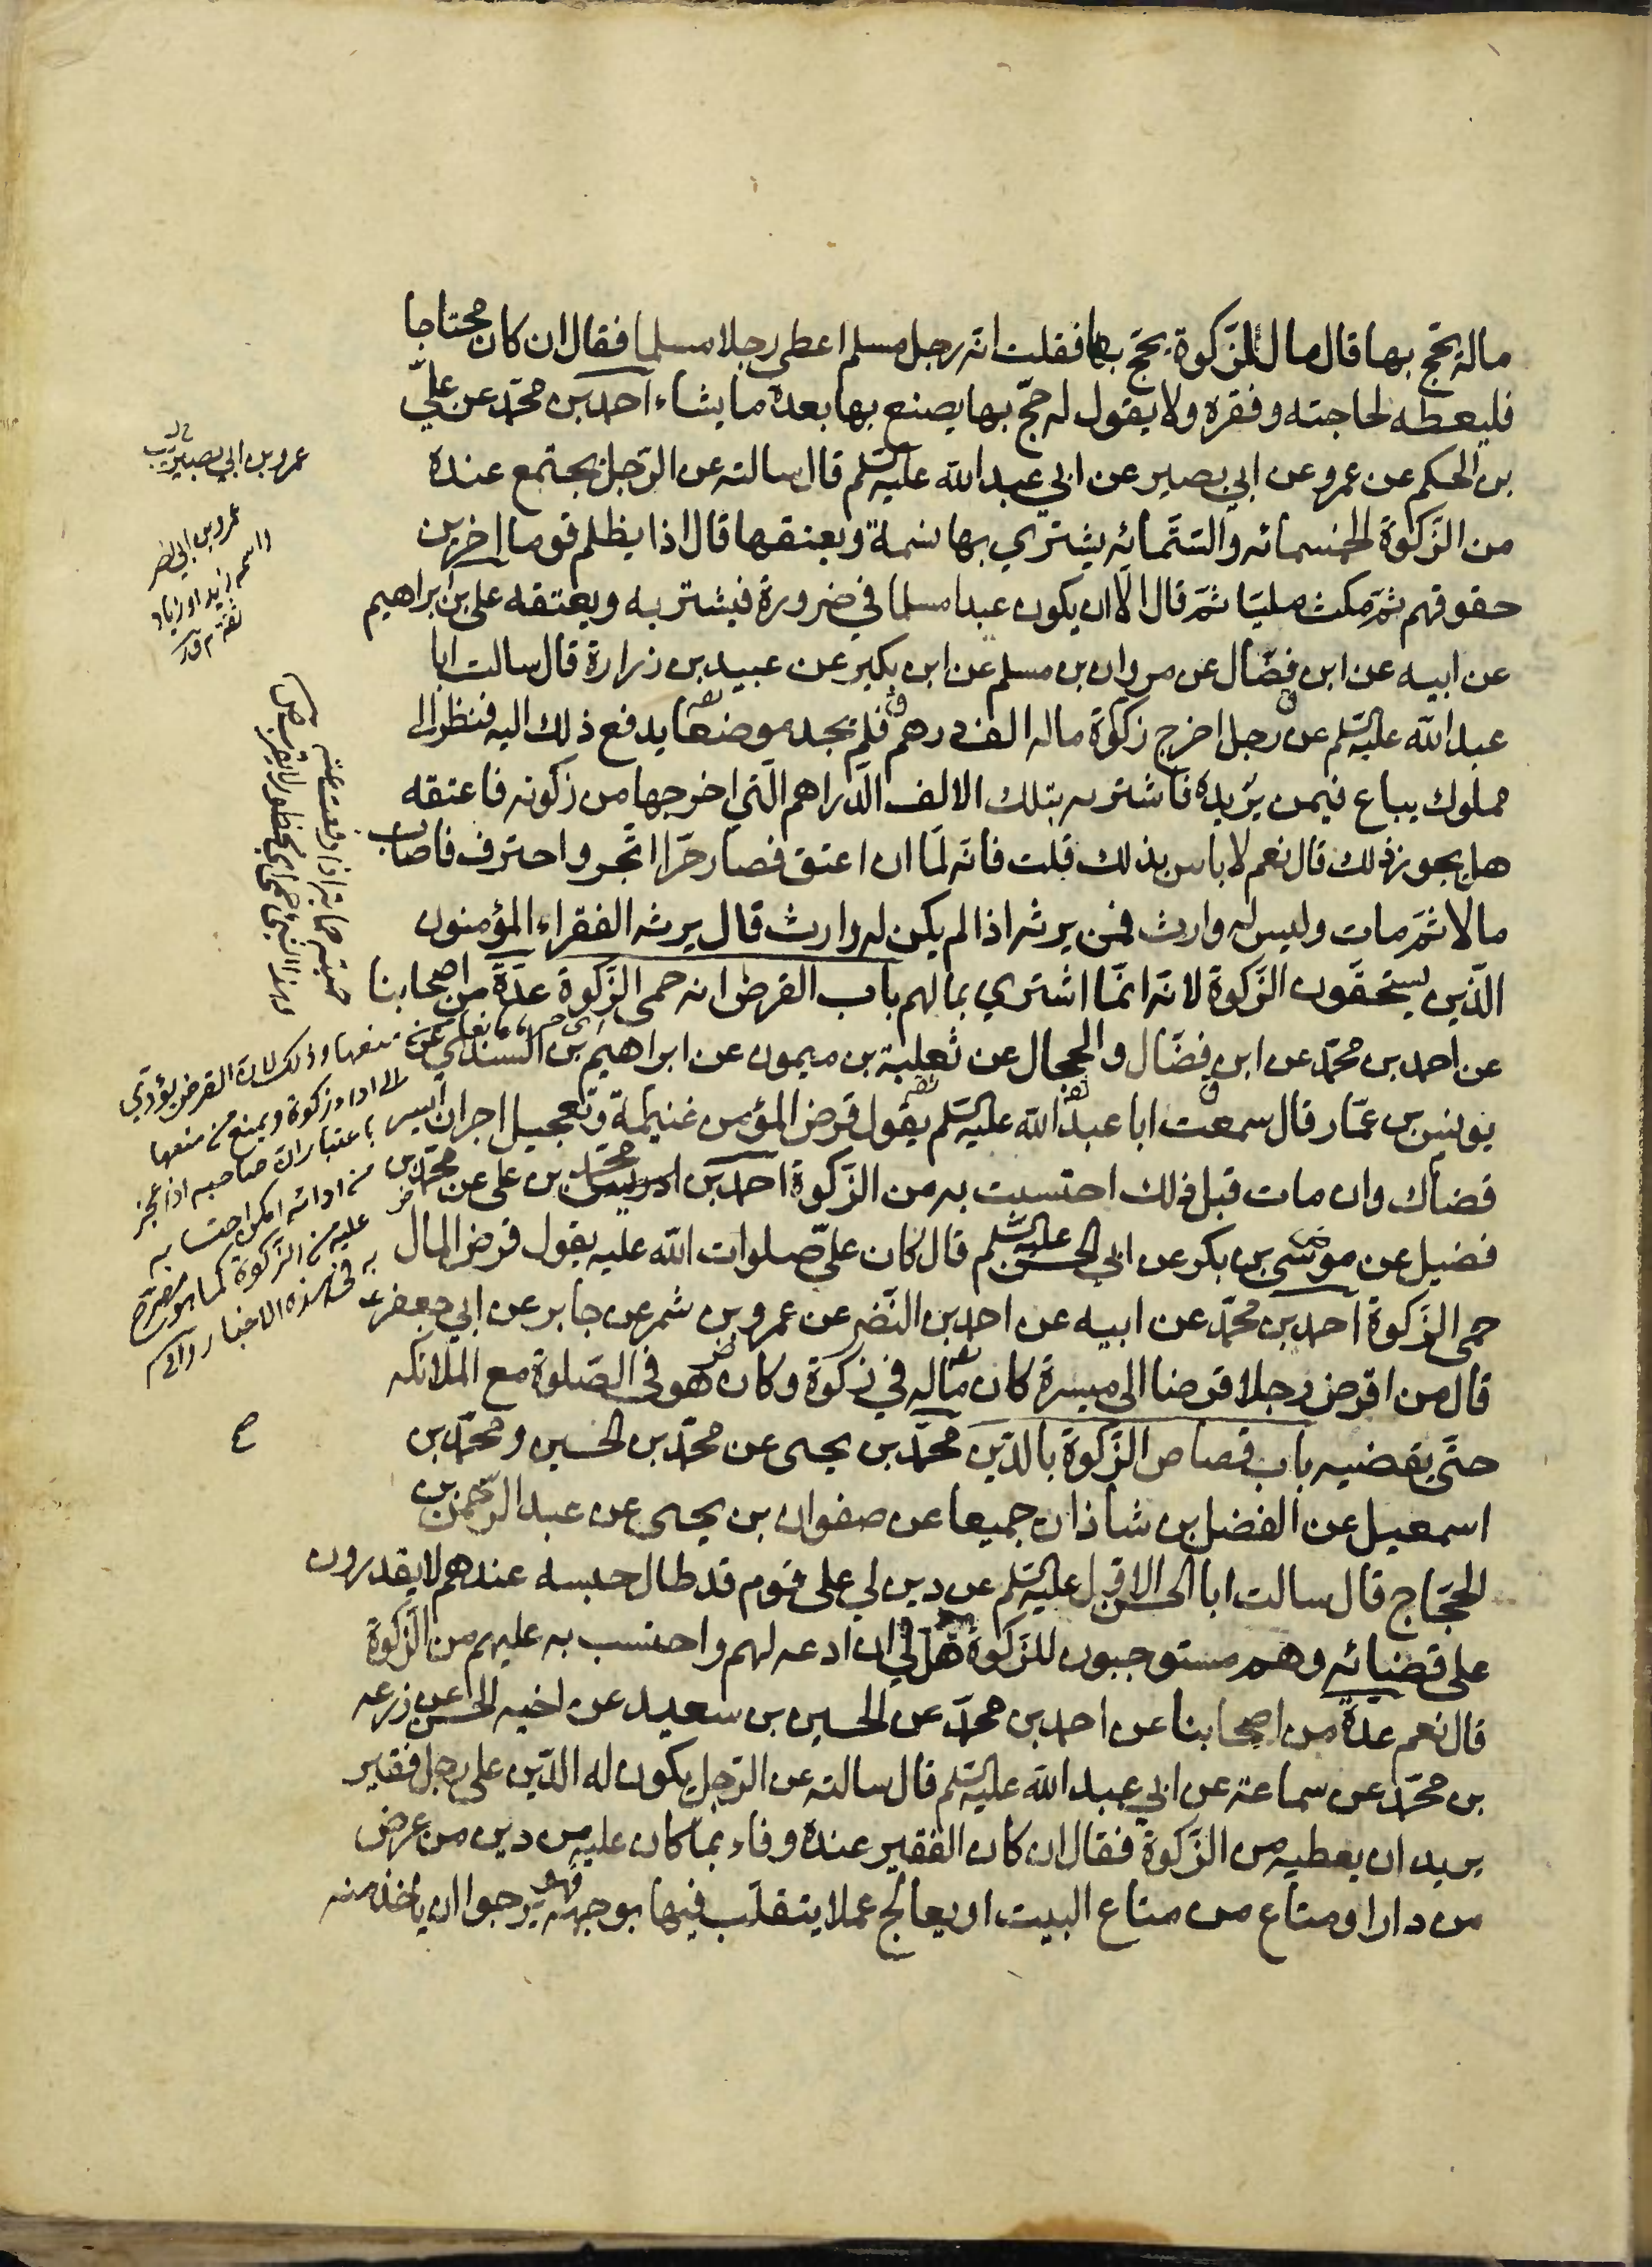 ماله يحج بها قال مال الزكوة يحج بها فقلت انه رجل مسلم اعطى رجلا مسلما فقال ان كان محتاجا
فليعطه لحاجته وفقره ولا يقول له حج بها يصنع بها بعده ما يشاء احمد بن محمد عن علي
بن الحكم عن عمرو عن ابي بصير عن ابي عبد الله عليه السلم قال سالته عن الرجل يجتمع عنده
من الزكوة الخمسمائه والستمائه يشتري بها نسمة ويعتقها قال اذا يظلم قوما اخرين
حقوقهم ثم مكث مليا ثم قال الا ان يكون عبدا مسلما في ضرورة فيشتريه ويعتقه على بن ابراهيم
عن ابيه عن ابن فضال عن مروان بن مسلم عن ابن بكير عن عبيد بن زرارة قال سالت ابا
عبد الله عليه السلم عن رجل اخرج زكوة ماله الف درهم فلم يجد موضعا يدفع ذلك اليه فنظر الى
مملوك يباع فيمن يزيده فاشتريه بتلك الالف الدراهم التي اخرجها من زكوته فاعتقه
هل يجوز ذلك قال نعم لا باس بذلك قلت فانه لما ان اعتق فصار حرا اتجر واحترف فاصاب
مالا ثم مات وليس له وارث فمن يرثه اذا لم يكن له وارث قال يرثه الفقراء المؤمنون
الذين يستحقون الزكوة لانه انما اشتري بمالهم باب القرض انه حمى الزكوة عدة من اصحابنا
عن احمد بن محمد عن ابن فضال والحجال عن ثعلبة بن ميمون عن ابراهيم بن السندي عن
يونس بن عمار قال سمعت ابا عبد الله عليه السلم يقول قرض المؤمن غنيمة وتعجيل اجر ان ايسر
قضاك وان مات قبل ذلك احتسبت به من الزكوة احمد بن ادريس محمد بن علي عن محمد بن
فضيل عن موسى بن بكر عن ابي الحسن عليه السلم قال كان علي صلوات الله عليه يقول قرض المال
حمى الزكوة احمد بن محمد عن ابيه عن احمد بن النضر عن عمرو بن شمر عن جابر عن ابي جعفر ع
قال من اقرض رجلا قرضا الى ميسرة كان ماله في زكوة وكان هو في الصلوة مع الملائكه
حتى يقضيه باب قصاص الزكوة بالدين محمد بن يحيى عن محمد بن الحسين ومحمد بن
اسمعيل عن الفضل بن شاذان جميعا عن صفوان بن يحيى عن عبد الرحمن بن
الحجاج قال سالت ابا الحسن الاول عليه السلم عن دين لي على قوم قد طال حبسه عندهم لا يقدرون
على قضائه وهم مستوجبون للزكوة هل لي ان ادعه لهم واحتسب به عليهم من الزكوة
قال نعم عدة من اصحابنا عن احمد بن محمد عن الحسين بن سعيد عن اخيه الحسن عن زرعه
بن محمد عن سماعة عن ابي عبد الله عليه السلم قال سالته عن الرجل يكون له الدين على رجل فقير
يريد ان يعطيه من الزكوة فقال ان كان الفقير عنده وفاء بما كان عليه من دين من عرض
من دار او متاع من متاع البيت او يعالج عملا يتقلب فيها بوجهه فهو يرجوا ان ياخذ منه
عمرو بن ابي بصير
عمرو بن ابي نصر
واسمه زيد او زياد
ثقة
منعها وذلك لان القرض يؤدي
الى اداء زكوة ويمنع من منعها
باعتبار ان صاحبه اذا عجز
من ادائه امكن احتسابه
عليه من الزكوة كما هو مصرح
به في هذه الاخبار